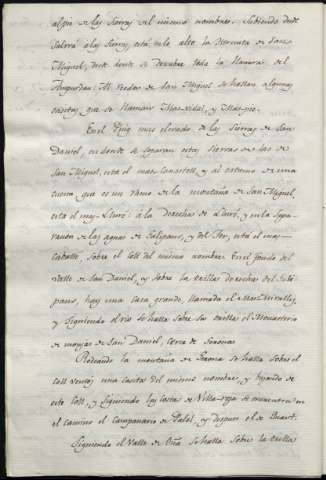 al pie de las sierras del mismo nombre. Subiendo desde
Salvá a las sierras, está, en lo alto la Hermita de San
Miguel, desde donde se descubre toda la llanura del
Ampurdan: Al rededor de San Miguel se hallan algunas
casitas, que se llaman Mas-vidal, y Mas-
En el Puig mas elevado de las sierras de San
Daniel, en donde se separan estas sierras de las de
San Miguel, está el mas-Canastell, y al extremo de una
cuesta que es un ramo de la montaña de San Miguel,
está el mas-Lluró: á la derecha de Lluró, y en la sepa-
racion de las aguas de Galigans, y del Ter, está el mas-
Caballé, sobre el Coll del mismo nombre. En el fondo del
Valle de San Daniel, y sobre la orilla derecha del Gali-
gans, hay una casa grande, llamada el Mas-Miralles,
y siguiendo el rio se halla sobre su orilla el Monasterio
de monjas de San Daniel, cerca de Gerona.
Rodeando la montaña de Gerona se halla sobre el
Coll ventos una casita del mismo nombre, y bajando de
este Coll, y siguiendo las cuestas de Villa-roja se encuentra en
el camino el Campanario de Palol, y despues el de Buart.
Siguiendo el Valle de Oña se halla sobre la orilla